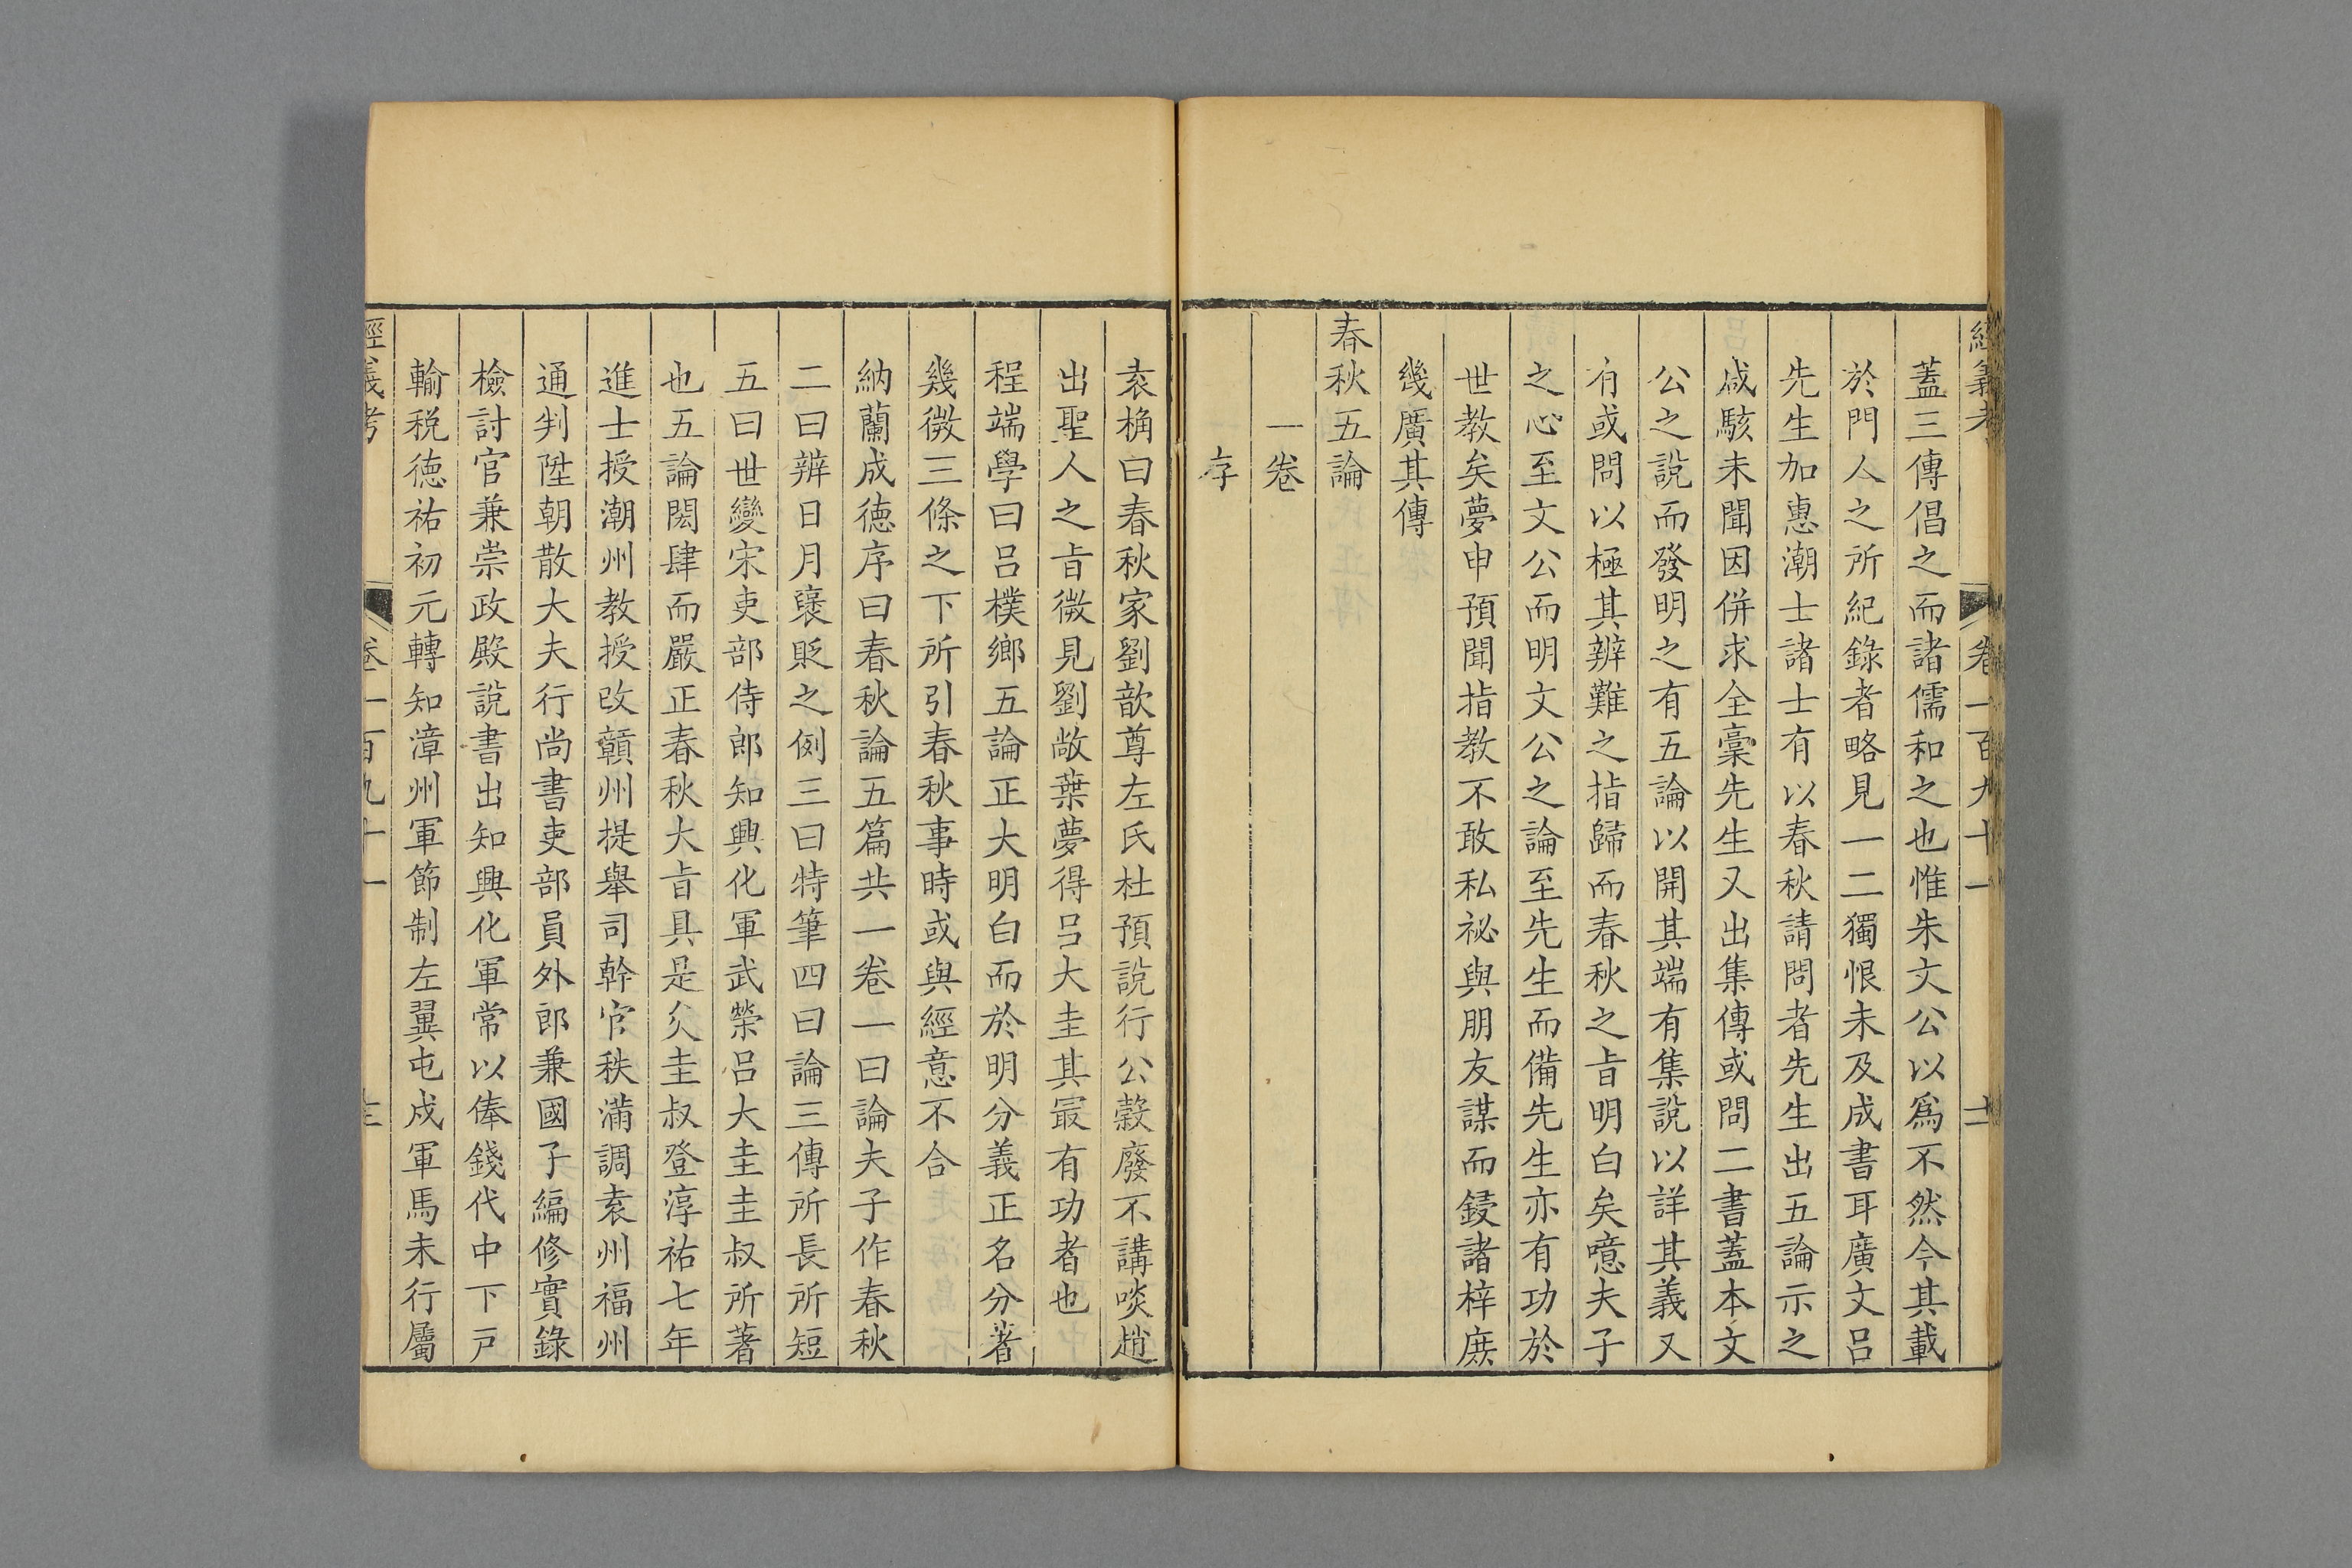 經義考 卷一百九十一 十二
蓋三傳倡之而諸儒和之也惟朱文公以爲不然今其載
於門人之所紀錄者略見一二獨恨未及成書耳廣文呂
先生加惠潮士諸士有以春秋請問者先生出五論示之
咸駭未聞因併求全稾先生又出集傳或問二書蓋本文
公之說而發明之有五論以開其端有集說以詳其義又
有或問以極其辨難之指歸而春秋之旨明白矣噫夫子
之心至文公而明文公之論至先生而備先生亦有功於
世教矣夢申預聞指教不敢私祕與朋友謀而鋟諸梓庻
幾廣其傳
春秋五論
一卷
存
袁桷曰春秋家劉歆尊左氏杜預說行公穀廢不講啖趙
出聖人之旨微見劉敞葉夢得呂大圭其㝡有功者也
程端學曰呂樸鄉五論正大明白而於明分義正名分著
幾微三條之下所引春秋事時或與經意不合
納蘭成徳序曰春秋論五篇共一卷一曰論夫子作春秋
二曰辨日月襃貶之例三曰特筆四曰論三傳所長所短
五曰世變宋吏部侍郎知興化軍武榮呂大圭圭叔所著
也五論閎肆而嚴正春秋大旨具是矣圭叔登淳祐七年
進士授潮州教授改贑州提舉司幹官秩滿調袁州福州
通判陞朝散大夫行尚書吏部員外郎兼國子編修實錄
檢討官兼崇政殿說書出知興化軍常以俸錢代中下戸
輸税徳祐初元轉知漳州軍節制左翼屯戍軍馬未行屬
經義考 卷一百九十一